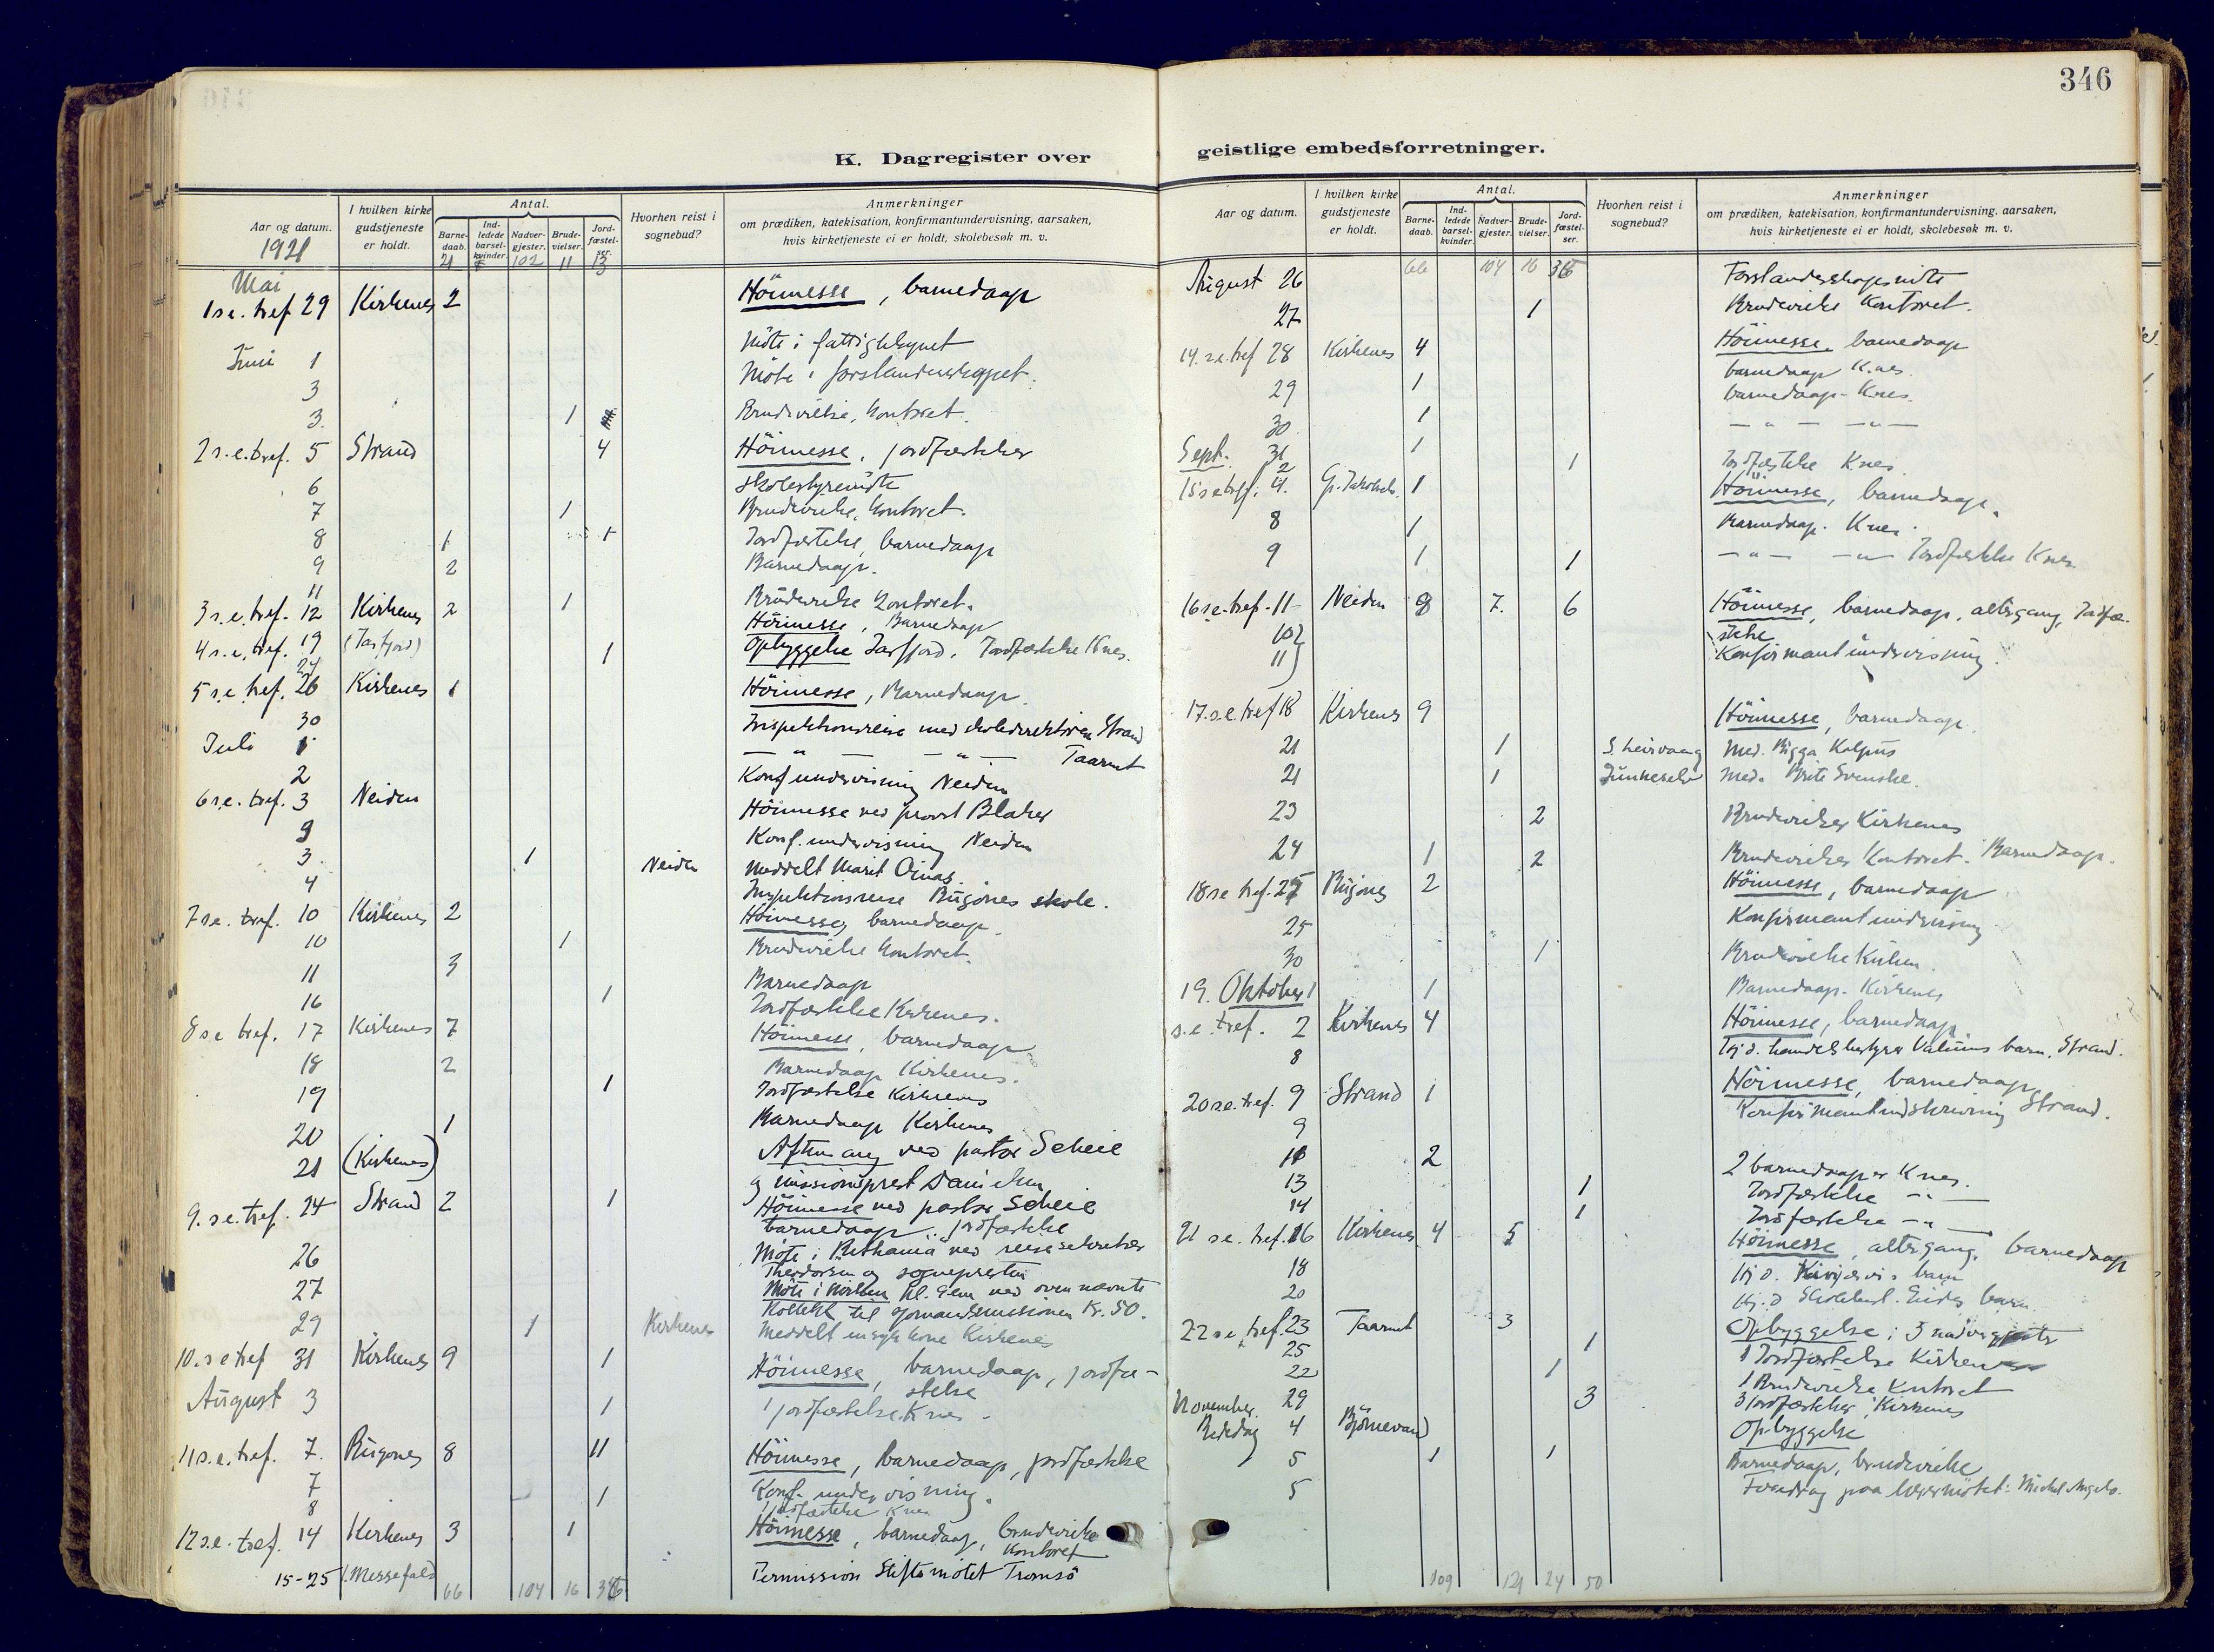 346
K. Dagregister over
geistlige embedsforretninger.
Aar og datum. 1921
I hvilken kirke gudstjeneste er holdt.
Antal.
Barne-daab.
Ind-ledede barsel-kvinder.
Nadver-gjester.
Brude-vielser.
Jord-fæstel-ser.
Hvorhen reist i sognebud?
Anmerkninger
om prædiken, katekisation, konfirmantundervisning, aarsaken,
hvis kirketjeneste ei er holdt, skolebesøk m. v.
21 102 11 13
Mai
1 s.e. tref 29 Kirkenes 2 Höimesse, barnedaap
Juni 1 Möte i fattigstyret
3 Möte i forstanderskapet.
3. 1 Brudevielse, kontoret.
2 s.e. tref. 5 Strand 4 Höimesse, jordfæstelser
6 Skolestyremöte
7 1 Brudevielse, kontoret.
8 1 1 Jordfæstelse, barnedaap
9 2 Barnedaap.
11 1 Brudevielse kontoret.
3 s.e. tref. 12 Kirkenes 2 Höimesse, Barnedaap
4 s.e. tref. 19 (Jarfjord) 1 Opbyggelse Jarfjord. Jordfæstelse Knes.
24
5 s.e. tref. 26 Kirkenes 1 Höimesse, Barnedaap.
30 Inspektionsreise med skoledirektören Strand
Juli 1 — " — — " — Taarnet
2 Konf undervisning Neiden
6 s.e. tref. 3 Neiden Höimesse ved provst Blaker
3 Konf. undervisning Neiden
3. 1 Neiden Meddelt Marit
4 Inspektionsreise Bugönes skole.
7 s.e. tref. 10 Kirkenes 2 Höimesse, barnedaap.
10 1 Brudevielse kontoret.
11 3 Barnedaap
16 1 Jordfæstelse Kirkenes.
8 s.e. tref. 17 Kirkenes 7 Höimesse, barnedaap
18 2 Barnedaap Kirkenes.
19 1 Jordfæstelse Kirkenes
20 1 Barnedaap Kirkenes
21 (Kirkenes) Aftensang ved pastor Scheie
og missionsprest
9. s.e. tref. 24 Strand 2 1 Höimesse ved pastor Scheie
barnedaap, jordfæstelse
26 Möte i Bethania ved reisesekretær
Theodorsen og sognepresten
27 Möte i kirken kl. 9 em ved ovennævnte
Kollekt til sömandsmissionen Kr. 50.
29 1 Kirkenes Meddelt en syk kone Kirkenes
10. s.e. tref 31 Kirkenes 9 1 Höimesse, barnedaap, jordfæ-
stelse
August 3 1 1 jordfæstelse Knes.
11 s.e. tref. 7. Bugönes 8 11 Höimesse, barnedaap, jordfæstelse
7 Konf. undervisning.
8 1 1 jordfæstelse Knes
12 s.e. tref. 14 Kirkenes 3 1 Höimesse, barnedaap, brudevielse
kontoret
15-25 Messefald Permission Stiftsmötet Tromsö
66 104 16 36
Aar og datum.
I hvilken kirke gudstjeneste er holdt.
Antal.
Barne-daab.
Ind-ledede barsel-kvinder.
Nadver-gjester.
Brude-vielser.
Jord-fæstel-ser.
Hvorhen reist i sognebud?
Anmerkninger
om prædiken, katekisation, konfirmantundervisning, aarsaken,
hvis kirketjeneste ei er holdt, skolebesøk m. v.
66 104 16 36
August 26 Forstanderskapsmöte
27 1 Brudevielse Kontoret.
14. s.e. tref 28 Kirkenes 4 Höimesse, barnedaap
29 1 barnedaap Knes.
30 1 barnedaap - Knes.
31 1 — " — — " —
Sept. 2 1 Jordfæstelse Knes.
15 s.e. tref. 4. Gr. Jakobselv. 1 Höimesse, barnedaap.
8 1 Barnedaap. Knes.
9 1 1 — " — — " — Jordfæstelse Knes.
16 s.e. tref. 11 Neiden 8 7. 6 Höimesse, barnedaap, altergang, Jordfæ-
stelse
10 11 Konfirmantundervisning.
17. s.e. tref 18 Kirkenes 9 Höimesse, barnedaap.
21 1 Med. Bigga Kalpus
21 1 Med. Brite Svenske.
23 2 Brudevielser Kirkenes
24 1 2 Brudevielser Kontoret. Barnedaap.
18 s.e. tref. 25 Bugönes 2 Höimesse, barnedaap
25 Konfirmantundervisning
30 1 Brudevielse Kirken.
19. Oktober 1 1 Barnedaap. Kirkenes
s.e. tref. 2 Kirkenes 4 Höimesse, barnedaap.
8 Hj. d. handelsbestyrer barn. Strand.
20 s.e. tref. 9 Strand 1 Höimesse, barnedaap
9 Konfirmantindskrivning Strand.
11 2 2 barnedaaper Knes.
13 1 Jordfæstelse — " —
14 1 Jordfæstelse — " —
21 s.e. tref. 16 Kirkenes 4 5 Höimesse, altergang. barnedaap
18 Hj. d. barn
20 Hj. d barn
22 s.e. tref. 23 Taarnet 3 Opbyggelse; 3 nadvergjester
25 1 1 Jordfæstelse Kirkenes
22 1 1 Brudevielse Kontoret
29 3 3 Jordfæstelser, Kirkenes
November Bededag 4 Björnevand Opbyggelse
5 1 1 Barnedaap, brudevielse
5 Foredrag paa lærermötet: Michel Angelo.
109 121 24 50